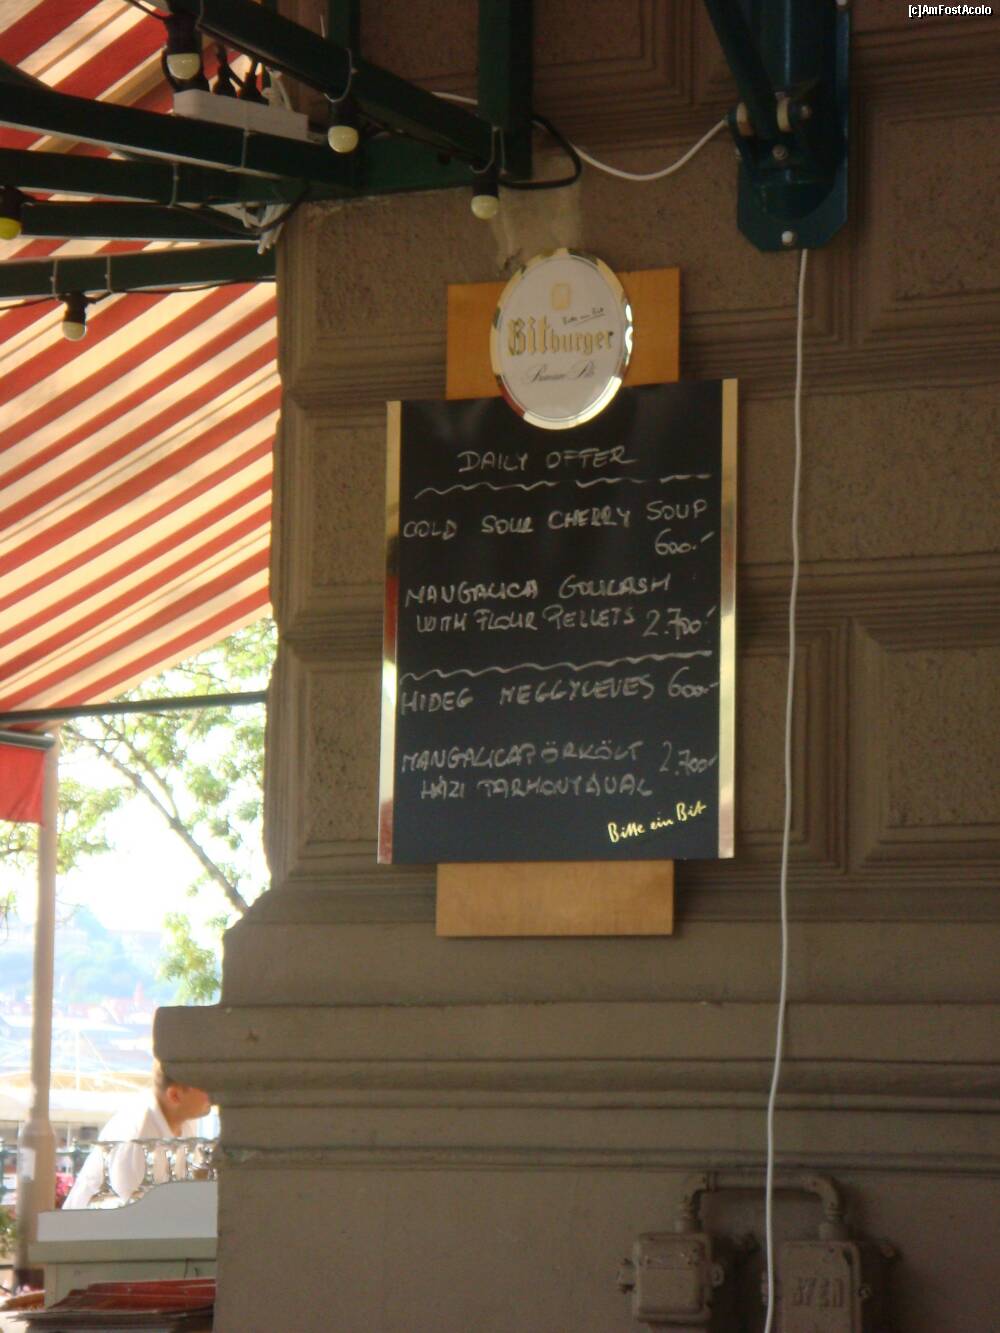 [c]AmFostAcolo
Bitte ein Bit
Bitburger
Premium Pils
DAILY OFFER
COLD SOUR CHERRY SOUP
600.-
MANGALICA GOULASH
WITH FLOUR PELLETS 2.700.-
HIDEG MEGGYLEVES 600.-
MANGALICAPÖRKÖLT 2.700.-
HÁZI TARHONYÁVAL
Bitte ein Bit